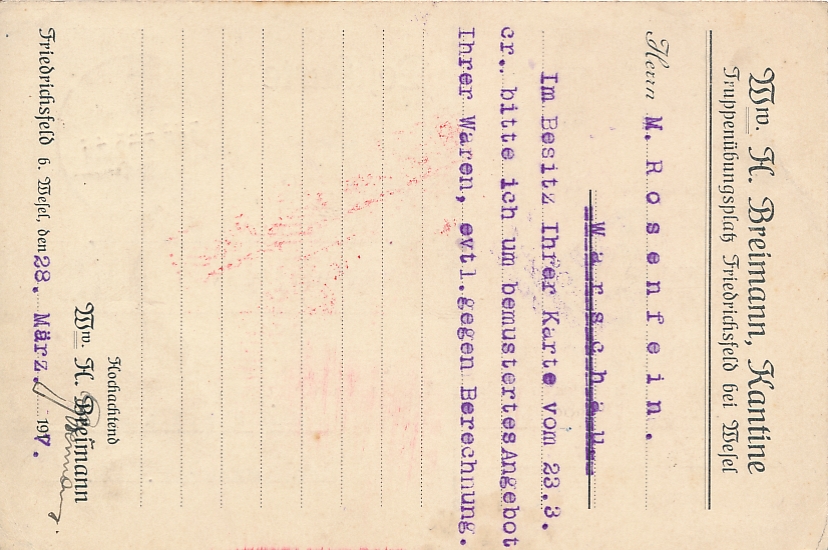 Ww. H. Breimann, Kantine
Truppenübungsplatz Friedrichsfeld bei Wesel
Herrn M. Rosenfein.
Warschau
Im Besitz Ihrer Karte vom 23.3.
cr. bitte ich um bemustertes Angebot
Ihrer Waren, evtl. gegen Berechnung.
Hochachtend
Ww. H. Breimann
Breimann
Friedrichsfeld b. Wesel, den 28. März. 1917.